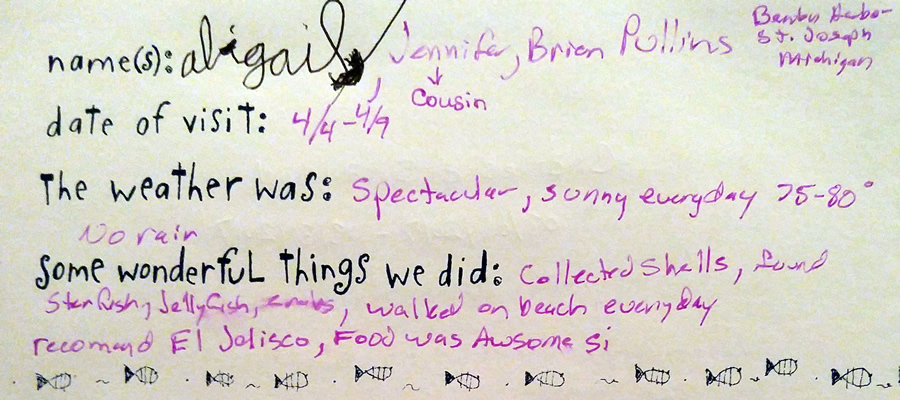 name(s): abigail, Jennifer, Brian Pullins
Cousin
Benton Harbor
St. Joseph
Michigan
date of visit: 4/4-4/9
The weather was: Spectacular, sunny everyday 75-80°
No rain
Some wonderful things we did: Collected Shells, found
Starfish, Jellyfish, crabs, walked on beach everyday
recomand El Jalisco, Food was Awsome si